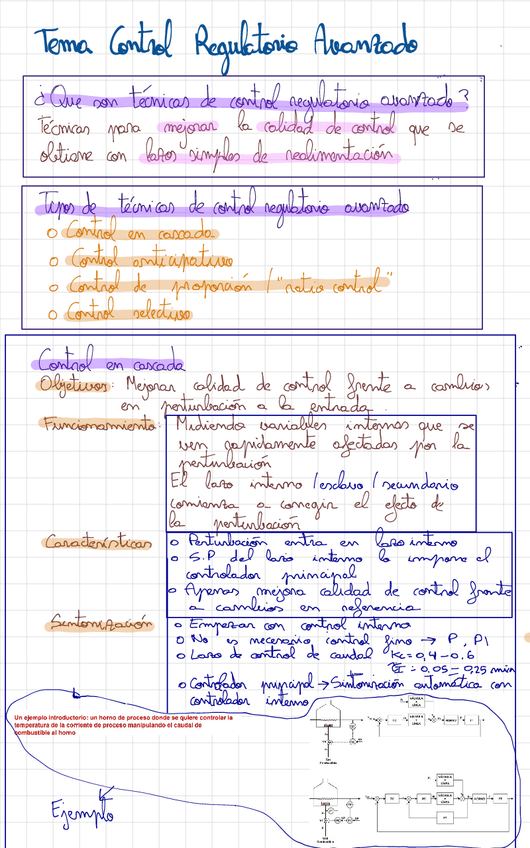 Tema Control Regulatorio Avanzado
¿Que son técnicas de control regulatorio avanzado?
Técnicas para mejorar la calidad de control que se
obtiene con lazos simples de realimentación
Tipos de técnicas de control regulatorio avanzado
o Control en cascada
o Control anticipativo
o Control de proporción / "ratio control"
o Control selectivo
Control en cascada
Objetivos: Mejorar calidad de control frente a cambios
en perturbación a la entrada.
Funcionamiento: Midiendo variables internas que se
ven rapidamente afectadas por la
perturbación
El lazo interno / esclavo / secundario
comienza a corregir el efecto de
la perturbación
Características o Perturbación entra en lazo interno
o S.P del lazo interno lo impone el
controlador principal
o Apenas mejora calidad de control frente
a cambios en referencia
Sintonización o Empezar con control interno
o No es necesario control fino → P, PI
o Lazo de control de caudal Kc = 0,4 - 0,6
= 0,05 - 0,25 min
o Controlador principal → Sintonización automática con
controlador interno
Un ejemplo introductorio: un horno de proceso donde se quiere controlar la
temperatura de la corriente de proceso manipulando el caudal de
combustible al horno
Ejemplo